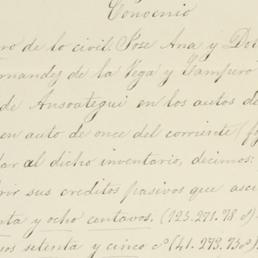 Convenio
ro de lo civil: Jose Ana y Dol
ernandez de la Vega y Sampero
de Ansoategui en los autos de
en auto de once del corriente (
dar al dicho inventario, decimos:
rir sus creditos pasivos que asci
nta y ocho centavos. (123.271.78
sos setenta y cinco cs (41.273.75